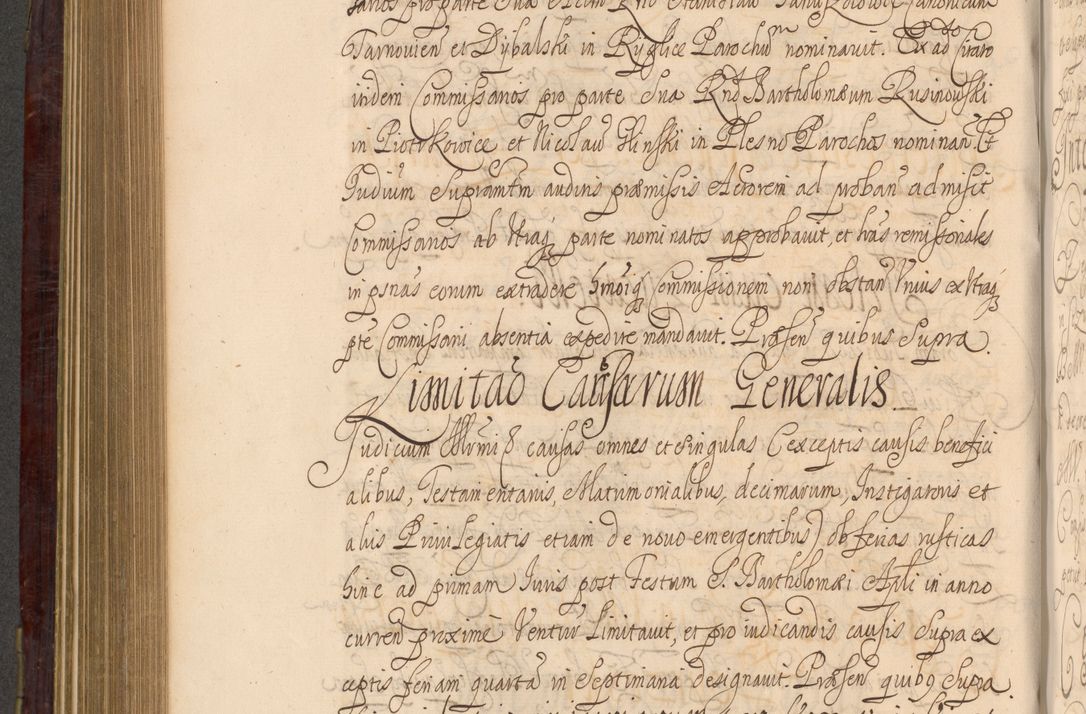 Tarnovien et Dybalski in Ryglice Paroch nominavit. Ex ad
itidem Commissarios pro parte sua Rnd Bartholomæum Rusinowski
in Piotrkowice et Nicolau Glinski in Plesno Parochos nominan Et
Judium Supramtm auditis præmissis Actorem ad proban admisit
Commissarios ab utraq parte nominatos approbavit, et has remissoriales
in psnas eorum extradere hmoiq Commissionem non obstan unius ex utraq
pte Commissarii absentia expedire mandavit. Præsen quibus Supra.
Limitao Causarum Generalis
Judicium causas omnes et singulas (exceptis causis benefici
alibus, Testamentariis, Matrimonialibus, decimarum, Instigatoris et
aliis Privilegiatis etiam de novo emergentibus) ob ferias rusticas
hinc ad primam Juris post Festum S. Bartholomæi Apli in anno
curren proxime Ventur Limitavit, et pro iudicandis causis supra ex
ceptis feriam quarta in Septimana designavit. Præsen quibq Supra.